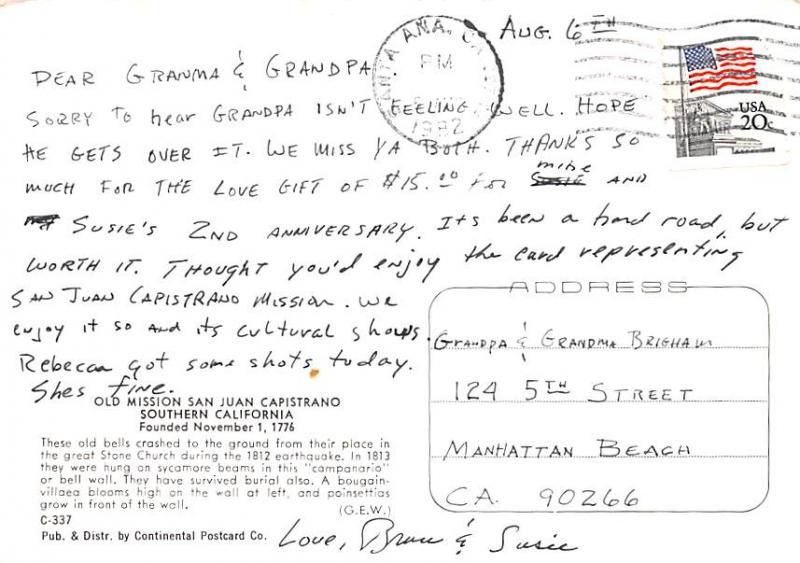 Aug. 6TH
SANTA ANA, CA
PM
1982
USA
20c
DEAR GRANMA & GRANDPA.
SORRY TO hear GRANDPA ISN'T FEELING WELL. HOPE
HE GETS OVER IT. WE MISS YA BOTH. THANKS SO
MUCH FOR THE LOVE GIFT OF $15.00 FOR mine AND
SUSIE'S 2ND ANNIVERSARY. Its been a hard road, but
WORTH IT. THOUGHT you'd enjoy the card representing
SAN JUAN CAPISTRANO MISSION. WE
enjoy it so and its cultural shows.
Rebecca got some shots today.
Shes fine.
OLD MISSION SAN JUAN CAPISTRANO
SOUTHERN CALIFORNIA
Founded November 1, 1776
These old bells crashed to the ground from their place in
the great Stone Church during the 1812 earthquake. In 1813
they were hung on sycamore beams in this "campanario"
or bell wall. They have survived burial also. A bougain-
villaea blooms high on the wall at left, and poinsettias
grow in front of the wall.
(G.E.W.)
C-337
Pub. & Distr. by Continental Postcard Co.
Love, Bruce & Susie
ADDRESS
GRANDPA & GRANDMA BRIGHAM
124 5TH STREET
MANHATTAN BEACH
CA. 90266